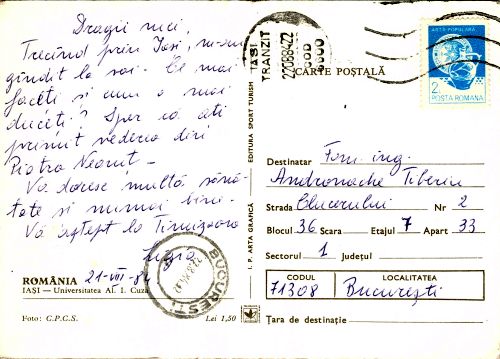 Dragii mei,
Trecînd prin Iași, m-am
gîndit la voi. Ce mai
faceți și cum o mai
duceți? Sper ca ați
primit vederea din
Piatra Neamț –
Vă doresc multă sănă-
tate și numai bine.
Vă aștept la Timișoara
ROMÂNIA 21-VIII-84
IAȘI — Universitatea Al. I. Cuza
Foto: C.P.C.S. Lei 1,50
I. P. ARTA GRAFICĂ
EDITURA SPORT TURISM
IAȘI
TRANZIT
220884.22
BUCUREȘTI
ARTA POPULARA
2L POSTA ROMANA
CARTE POȘTALĂ
Destinatar Fam. ing.
Andronache Tiberiu
Strada Clucerului Nr 2
Blocul 36 Scara Etajul 7 Apart 33
Sectorul 1 Județul
CODUL LOCALITATEA
71308 București
Țara de destinație